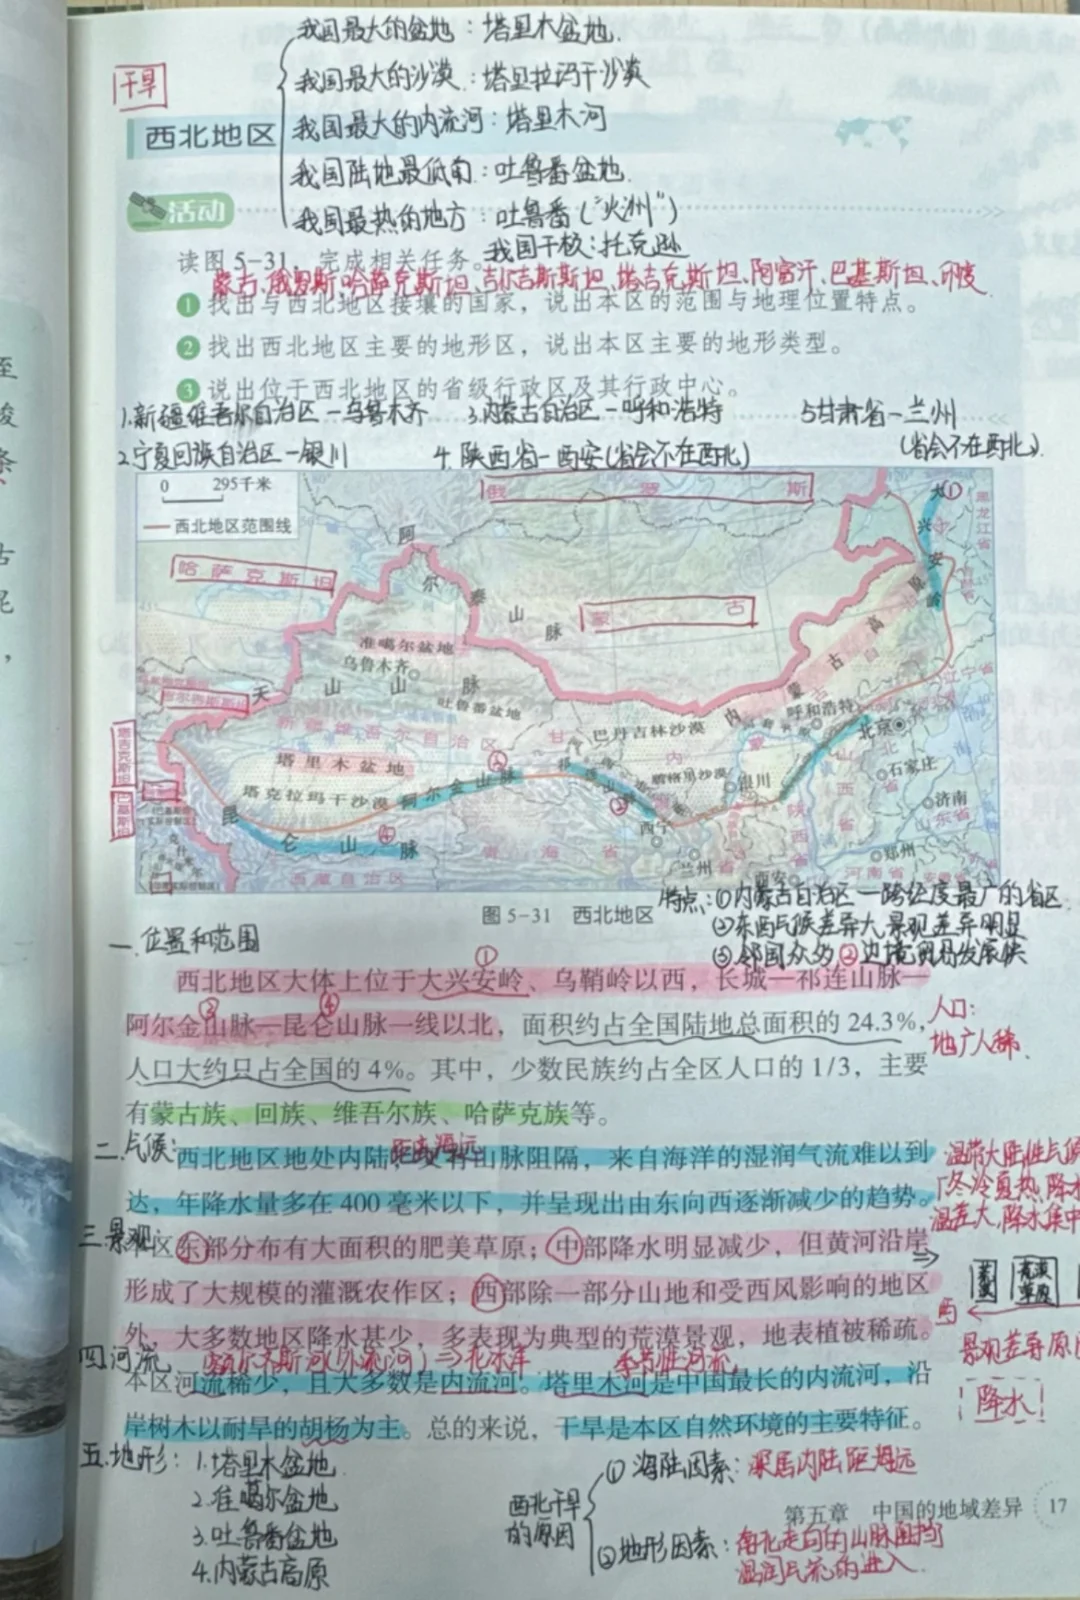 我国最大的盆地：塔里木盆地.
干旱
我国最大的沙漠：塔里拉玛干沙漠
西北地区
我国最大的内流河：塔里木河
我国陆地最低点：吐鲁番盆地.
活动
我国最热的地方：吐鲁番（“火洲”）
我国干极：托克逊
读图 5-31，完成相关任务。
蒙古、俄罗斯、哈萨克斯坦、吉尔吉斯斯坦、塔吉克斯坦、阿富汗、巴基斯坦、印度
1 找出与西北地区接壤的国家，说出本区的范围与地理位置特点。
2 找出西北地区主要的地形区，说出本区主要的地形类型。
3 说出位于西北地区的省级行政区及其行政中心。
1.新疆维吾尔自治区－乌鲁木齐 3.内蒙古自治区－呼和浩特 5甘肃省－兰州
2.宁夏回族自治区－银川 4.陕西省－西安（省会不在西北） （省会不在西北）.
0 295千米
西北地区范围线
俄罗斯
哈萨克斯坦
蒙古
吉尔吉斯斯坦
塔吉克斯坦
巴基斯坦
大兴安岭
①
黑龙江省
阿尔泰山脉
准噶尔盆地
乌鲁木齐
天山山脉
吐鲁番盆地
新疆维吾尔自治区
塔里木盆地
塔克拉玛干沙漠
阿尔金山脉
昆仑山脉
④
西藏自治区
青海省
巴丹吉林沙漠
腾格里沙漠
内蒙古高原
呼和浩特
银川
西宁
兰州
西安
北京
石家庄
济南
郑州
辽宁省
山西省
陕西省
河南省
图 5-31 西北地区
特点：①内蒙古自治区－跨经度最广的省区.
②东西气候差异大，景观差异明显
③邻国众多 边境贸易发展快
一.位置和范围
①
西北地区大体上位于大兴安岭、乌鞘岭以西，长城—祁连山脉—
③ ④
阿尔金山脉—昆仑山脉一线以北，面积约占全国陆地总面积的 24.3%，
人口：
地广人稀.
人口大约只占全国的 4%。其中，少数民族约占全区人口的 1/3，主要
有蒙古族、回族、维吾尔族、哈萨克族等。
二.气候：
距离海远
西北地区地处内陆，山脉阻隔，来自海洋的湿润气流难以到
达，年降水量多在 400 毫米以下，并呈现出由东向西逐渐减少的趋势。
温带大陆性气候
冬冷夏热，降水
温差大，降水集中
三.景观：
本区东部分布有大面积的肥美草原；中部降水明显减少，但黄河沿岸
形成了大规模的灌溉农作区；西部除一部分山地和受西风影响的地区
外，大多数地区降水甚少，多表现为典型的荒漠景观，地表植被稀疏。
西
景观差异原因
降水！
四河流.
额尔齐斯河（外流河）→北冰洋 季节性河流
本区河流稀少，且大多数是内流河。塔里木河是中国最长的内流河，沿
岸树木以耐旱的胡杨为主。总的来说，干旱是本区自然环境的主要特征。
五.地形：1.塔里木盆地
2.准噶尔盆地
3.吐鲁番盆地
4.内蒙古高原
西北干旱的原因
①海陆因素：深居内陆 距海远
第五章 中国的地域差异 17
②地形因素：南北走向的山脉阻挡
湿润气流的进入.